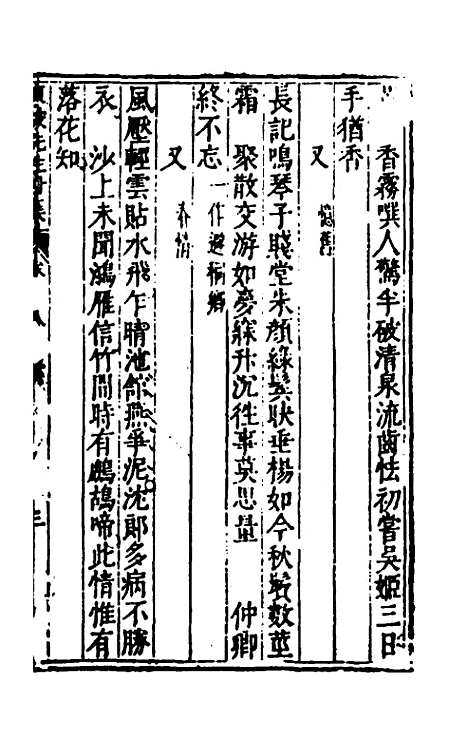 香霧噀人驚半破清泉流齒怯初嘗吳姬三日
手猶香
又 懷舊
長記鳴琴子賤堂朱顏綠鬢映垂楊如今秋鬢數莖
霜 聚散交游如夢寐升沉往事莫思量 仲卿
終不忘 一作避稱鄉
又 春情
風壓輕雲貼水飛乍晴池館燕爭泥沈郎多病不勝
衣 沙上未聞鴻雁信竹間時有鷓鴣啼此情惟有
落花知